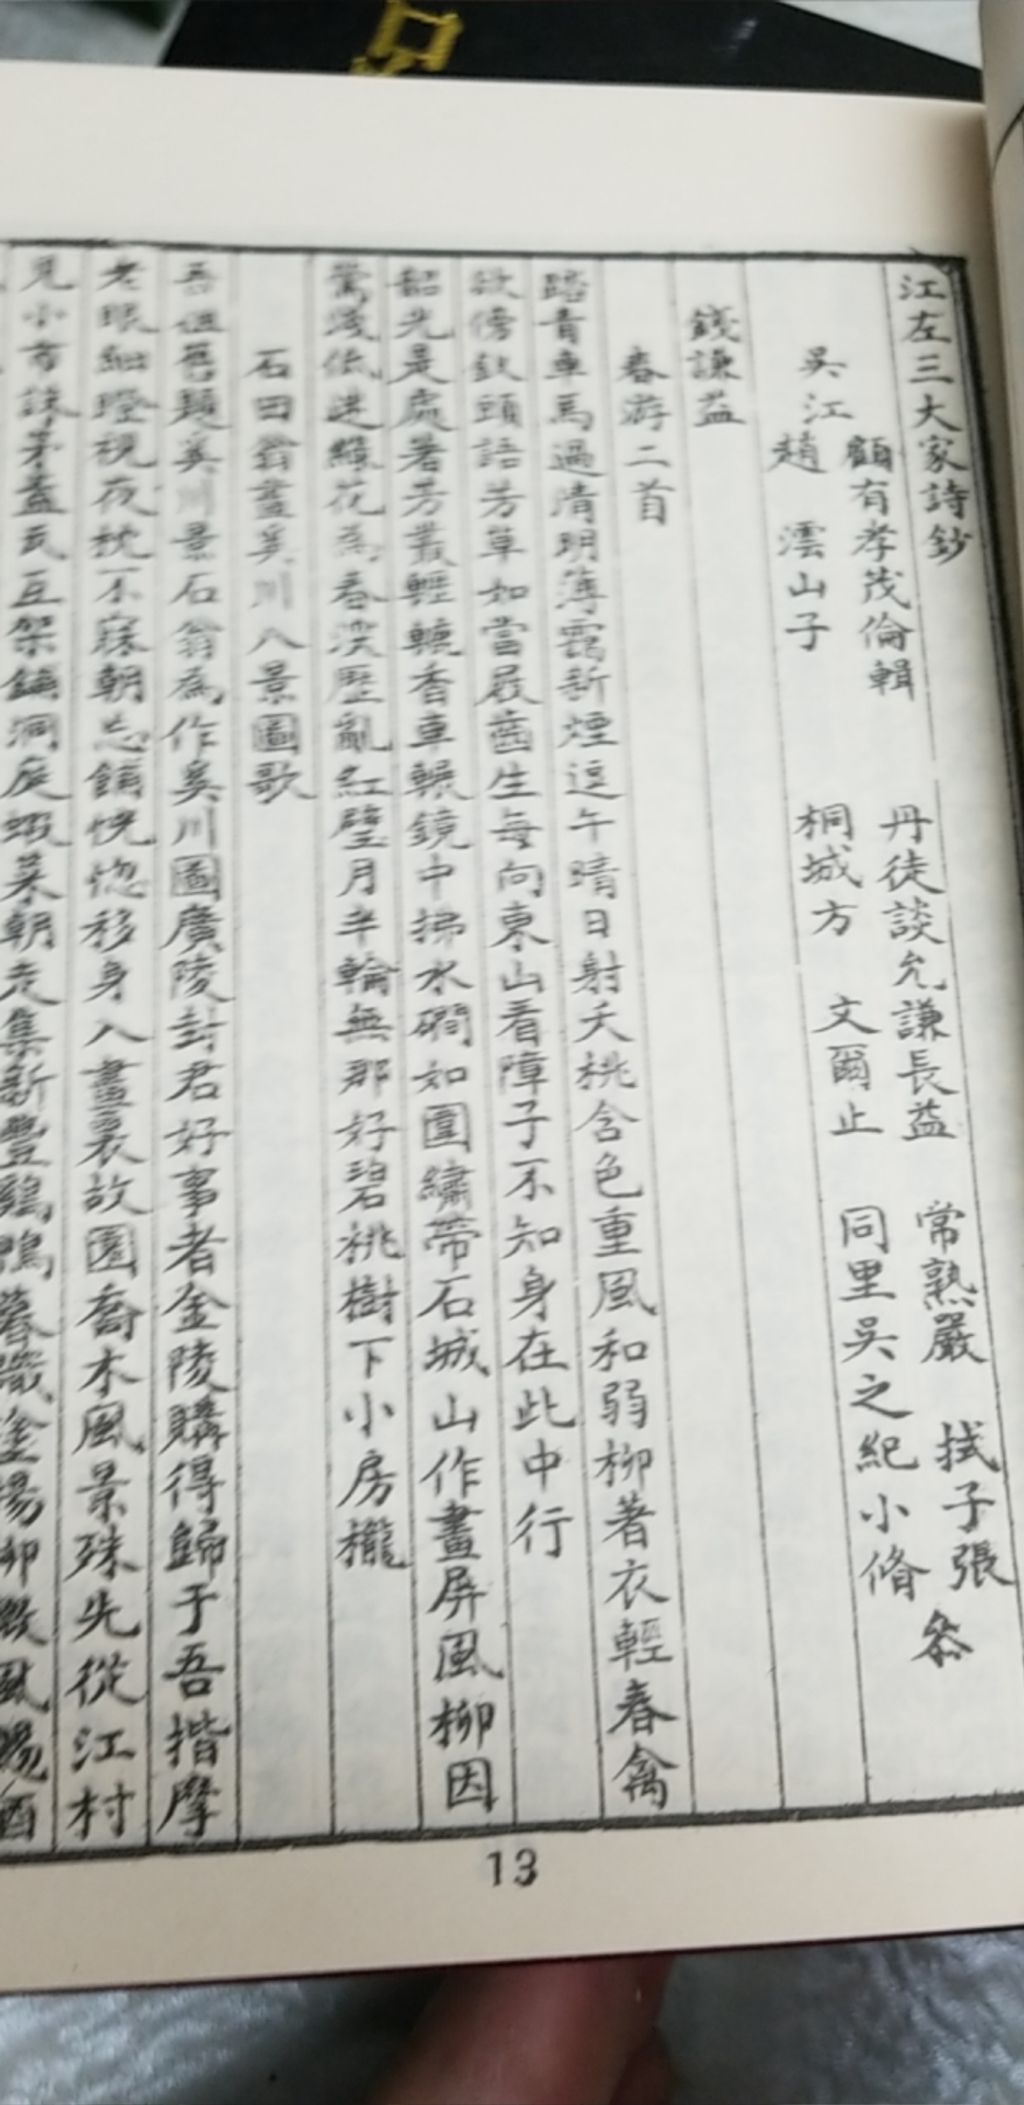 江左三大家詩鈔
顧有孝茂倫輯 丹徒談允謙長益 常熟嚴 拭子張
吳江 叅
趙 澐山子 桐城方 文爾止 同里吳之紀小脩
錢謙益
春游二首
踏青車馬過清明薄靄新煙逗午晴日射夭桃含色重風和弱柳著衣輕春禽
欲傍釵頭語芳草如當屐齒生每向東山看障子不知身在此中行
韶光是處著芳叢輕轣香車輾鏡中拂水磵如圍繡帶石城山作畫屏風柳因
鶯淺低迷綠花為春深歷亂紅璧月半輪無那好碧桃樹下小房櫳
石田翁畫奚川八景圖歌
吾祖舊題奚川景石翁為作奚川圖廣陵封君好事者金陵購得歸于吾揩摩
老眼細瞪視夜枕不寐朝忘餔恍惚移身入畫裏故園喬木風景殊先從江村
見小市誅茅蓋瓦豆架鋪洞庭蝦菜朝走集新豐鷄鴨暮識塗楊柳數風颺酒